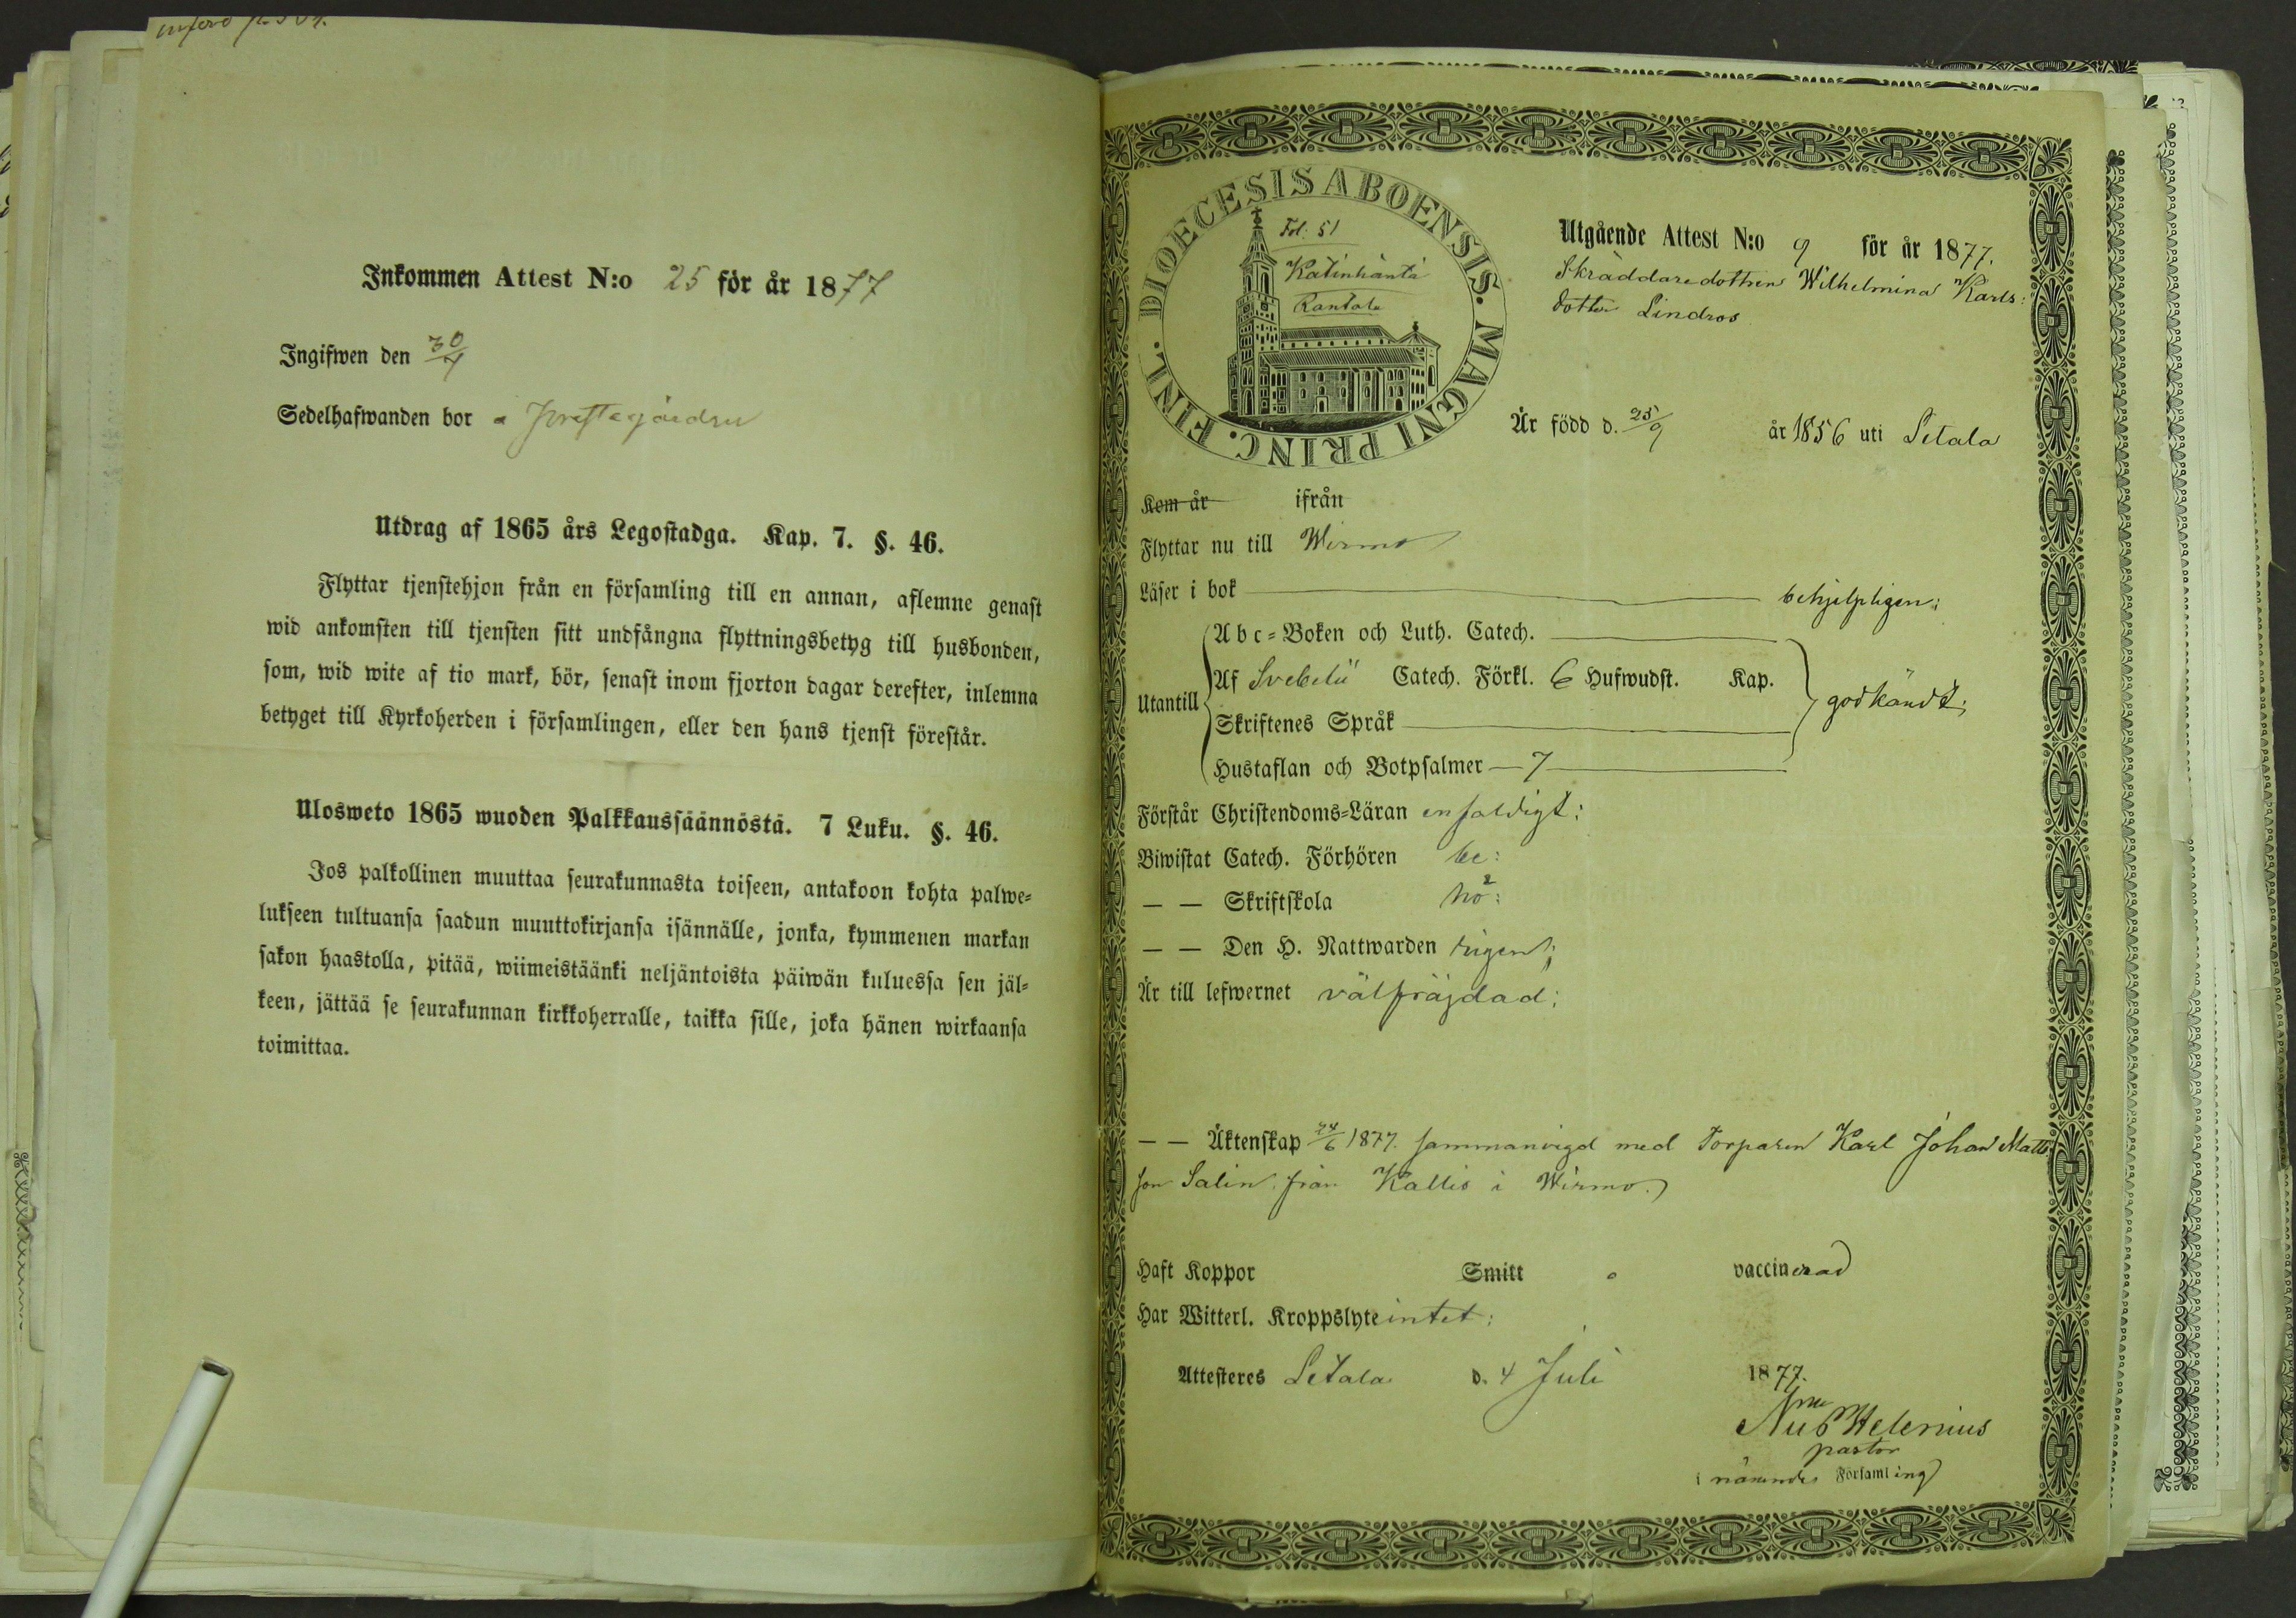 Inkommen Attest N:o 25 för år 1877
Ingifwen den 30/7
Sedelhafwanden bor
Utdrag af 1865 års Legostadga. Kap. 7. §. 46.
Flyttar tjenstehjon från en församling till en annan, aflemne genast
wid ankomsten till tjensten sitt undfångna flyttningsbetyg till husbonden,
som, wid wite af tio mark, bör, senast inom fjorton dagar derefter, inlemna
betyget till Kyrkoherden i församlingen, eller den hans tjenst förestår.
Ulosweto 1865 wuoden Palkkaussäännöstä. 7 Luku. §. 46.
Jos palkollinen muuttaa seurakunnasta toiseen, antakoon kohta palwe-
lukseen tultuansa saadun muuttokirjansa isännälle, jonka, kymmenen markan
sakon haastolla, pitää, wiimeistäänki neljäntoista päiwän kuluessa sen jäl-
keen, jättää se seurakunnan kirkkoherralle, taikka sille, joka hänen wirkaansa
toimittaa.
DIOECESIS ABOENSIS. MAGNI PRINC. FINL.
Fol: 51
Katinhäntä
Rantala
Utgående Attest N:o 9 för år 1877.
Skräddaredottren Wilhelmina Karls:
dotter Lindros
Är född d. 25/9 år 1856 uti Letala
Kom år ifrån
Flyttar nu till Wirmo
Läser i bok behjelpligen;
Utantill
A b c-Boken och Luth. Catech.
Af Svebelii Catech. Förkl. 6 Hufwudst. Kap.
godkändt;
Skriftenes Språk
Hustaflan och Botpsalmer 7
Förstår Christendoms-Läran enfaldigt:
Biwistat Catech. Förhören be:
— — Skriftskola
— — Den H. Nattwarden
Är till lefwernet välfräjdad;
— — Äktenskap 24/6 1877. sammanvigd med Torparen Karl Johan Matts
son Salin från Kallis i Wirmo.
Haft Koppor Smitt vaccinerad
Har Witterl. Kroppslyte intet:
Attesteres Letala d. 4 Juli 1877.
Helenius
pastor
i nämnde Församling